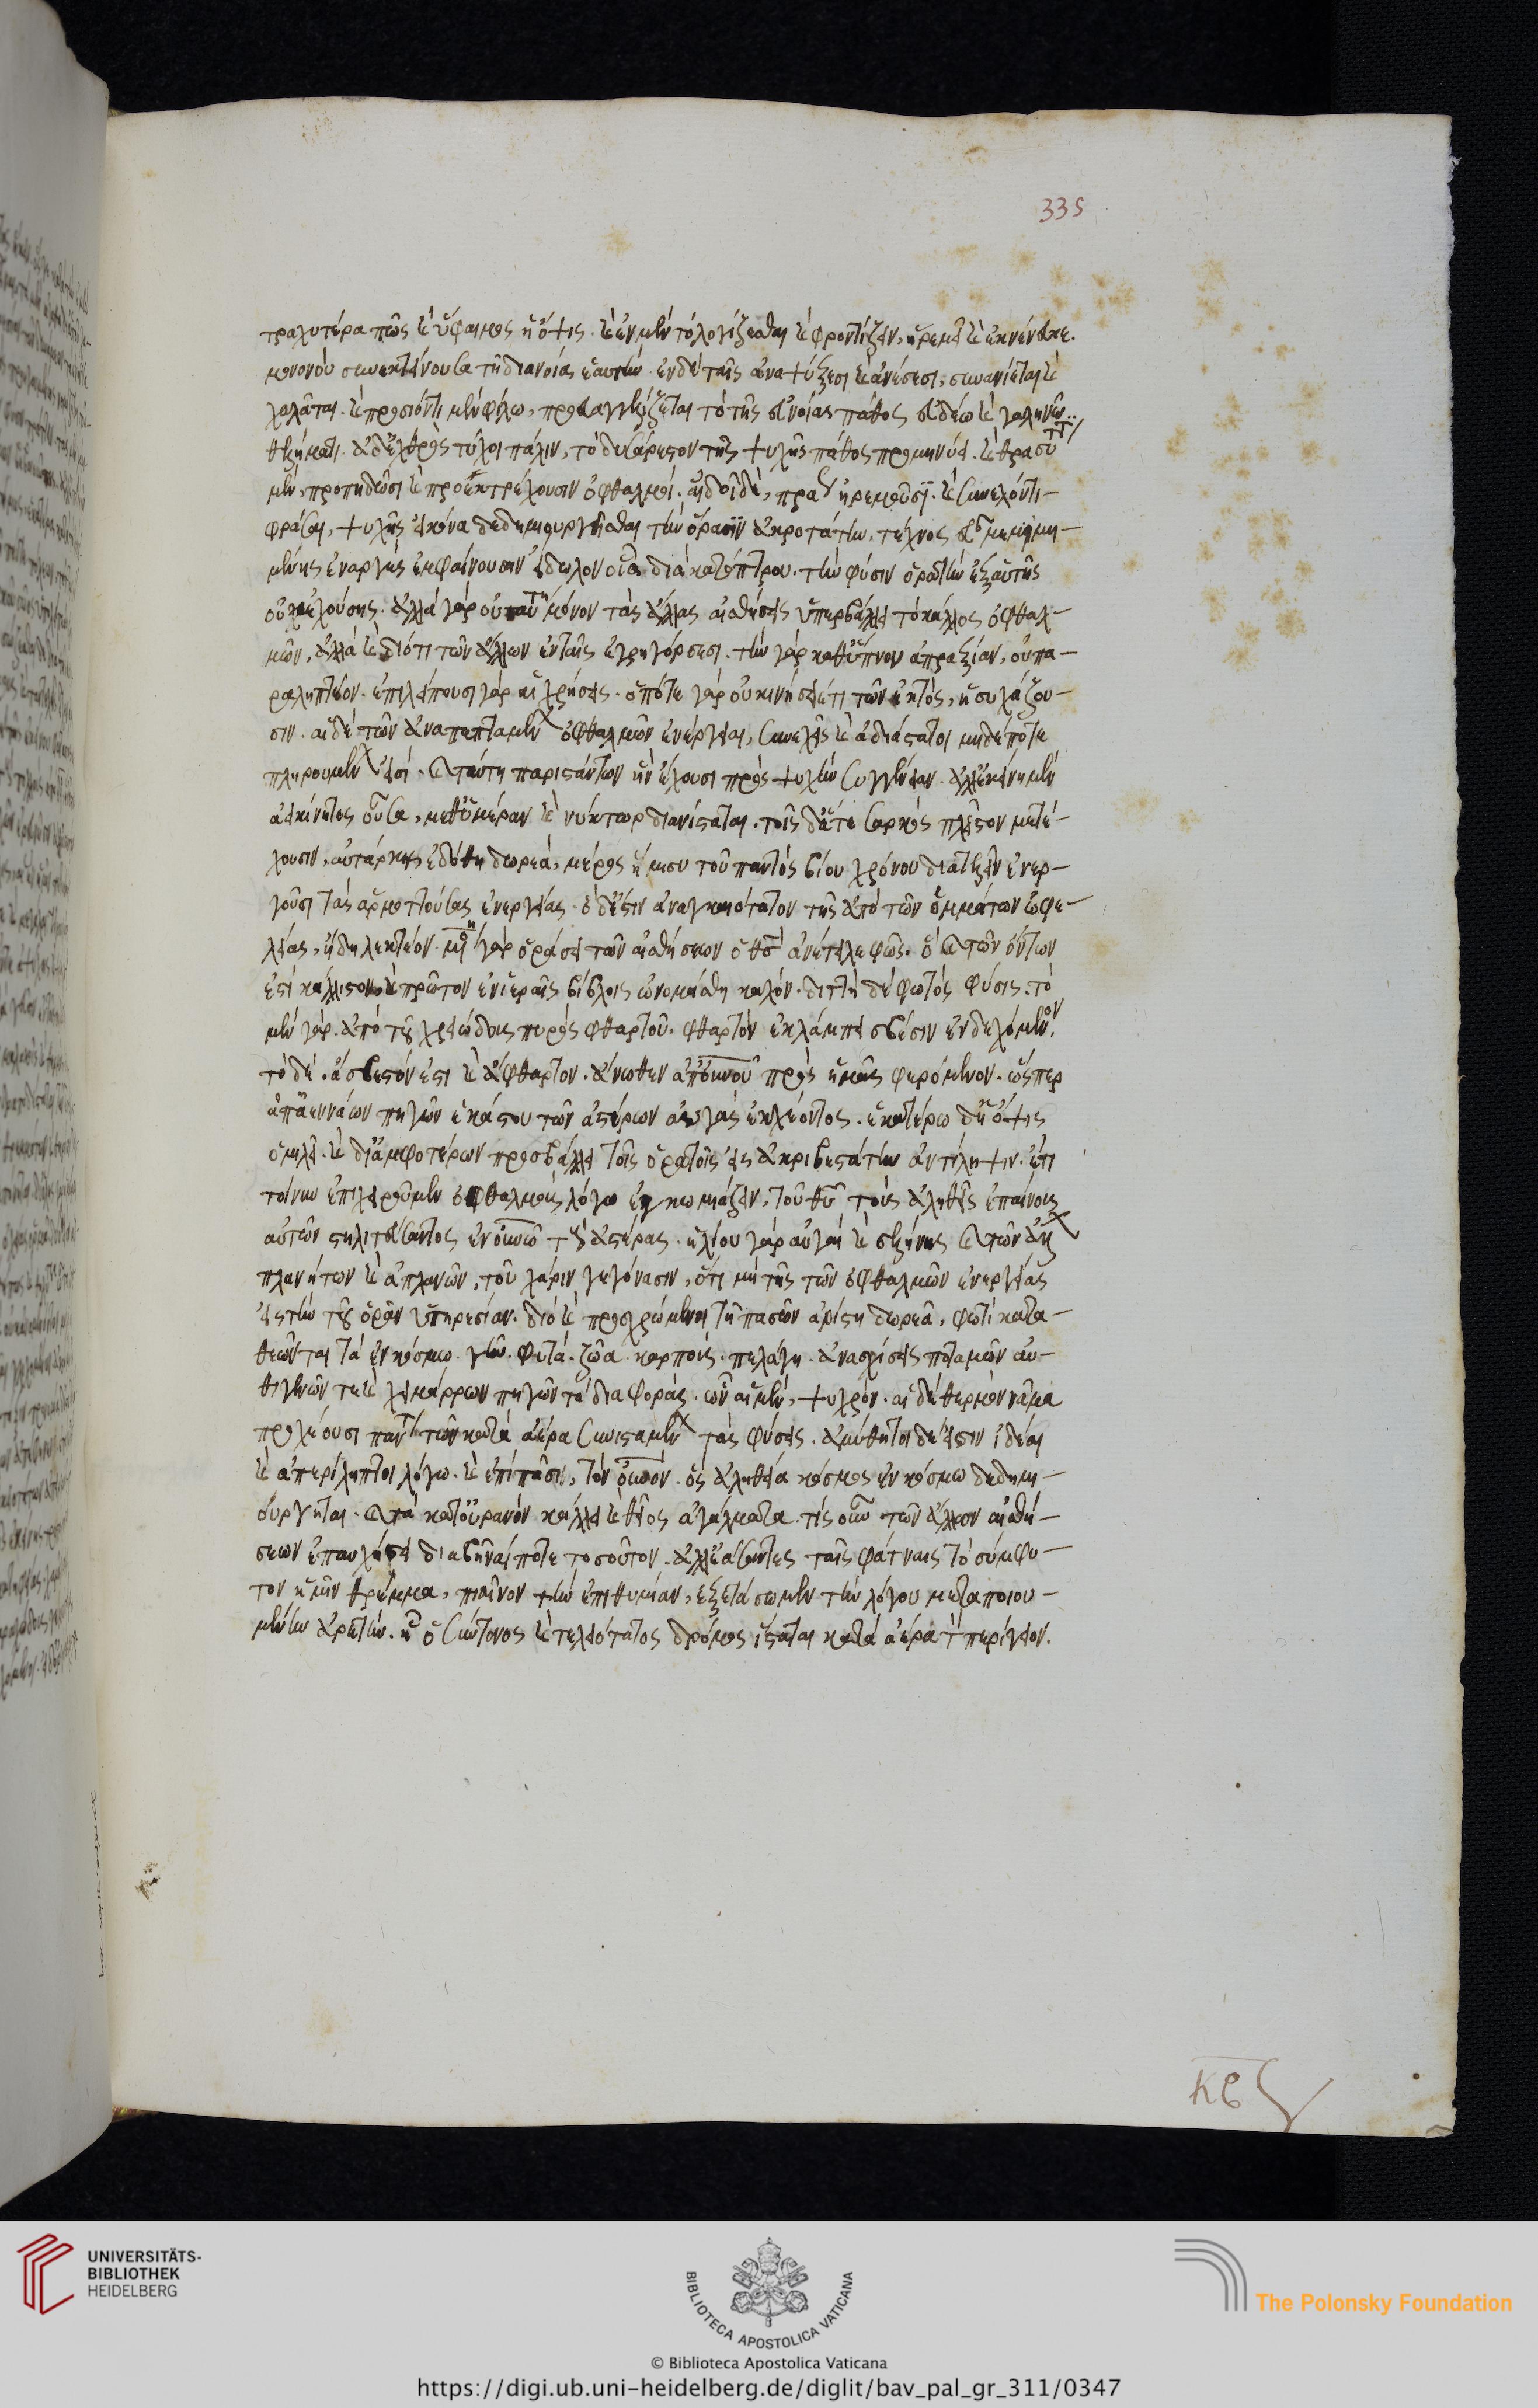 335
τραχυτέρα πῶς καὶ ὕφαιμος ἡ ὄψις. καὶ ἐν μὲν τῶ λογίζεσθαι καὶ φροντίζειν, ἠρεμεῖ καὶ ἐκνένευκε.
μονονοὺ συνεκτείνουσα τῆ διανοίας ἑαυτήν. ἐν δὲ ταῖς ἀναψύξεσι καὶ ἀνέσεσι, συνανίεται καὶ
χαλᾶται. καὶ προσιόντι μὲν φίλω, προευαγγελίζεται τὸ τῆς εὐνοίας πάθος εὐδίω καὶ γαληνῶ
βλέμματι. εἰ δ' ἐχθρὸς τύχοι πάλιν, τὸ δυσάρεστον τῆς ψυχῆς πάθος προμηνύει. καὶ θρασύτητι
μὲν, προπηδῶσι καὶ προεκτρέχουσιν ὀφθαλμοί. αἰδοῖ δὲ, πράως ἠρεμοῦσϊ. καὶ συνελόντι
φράσαι, ψυχῆς εἰκόνα δεδημιουργῆσθαι τὴν ὅρασϊν ἀκροτάτην, τέχνης εὖ μεμιμη-
μένης ἐναργὲς ἐμφαίνουσιν εἴδωλον οἷα διὰ κατόπτρου. τὴν φύσιν ὁρατὴν ἐξ αὑτῆς
οὐκ ἐχούσης. ἀλλὰ γὰρ οὐ ταύτη μόνον τὰς ἄλλας αἰσθήσεις ὑπερβάλλει τὸ κάλλος ὀφθαλ-
μῶν, ἀλλὰ καὶ διότι τῶν ἄλλων ἐν ταῖς ἐγρηγόρσεσι. τὴν γὰρ καθ' ὕπνον ἀπραξίαν, οὐ πα-
ραληπτέον. ἐπιλείπουσι γὰρ αἱ χρήσεις. ὁπότε γὰρ οὐ κινήσειέ τι τῶν ἐκτὸς, ἡσυχάζου-
σιν. αἱ δὲ τῶν ἀναπεπταμένων ὀφθαλμῶν ἐνέργειαι, συνεχεῖς καὶ ἀδιάστατοι μηδέποτε
πληρουμένων εἰσί. καὶ ταύτη παριστάντων ἣν ἔχουσι πρὸς ψυχὴν συγγένειαν. ἀλλ' ἐκείνη μὲν
ἀεικίνητος οὖσα, μεθ' ἡμέραν καὶ νύκτωρ διανίσταται. τοῖς δ' ἅτε σαρκὸς πλεῖστον μετέ-
χουσιν, αὐτάρκης ἐδόθη δωρεὰ, μέρος ἥμισυ τοῦ παντὸς βίου χρόνου διατελεῖν ἐνερ-
γοῦσι τὰς ἁρμοττούσας ἐνεργείας. ὃ δ' ἐστὶν ἀναγκαιότατον τῆς ἀπὸ τῶν ὀμμάτων ὠφε-
λείας, ἤδη λεκτέον. μόνη γὰρ ὁράσει τῶν αἰσθήσεων ὁ θεὸς ἀνέτειλε φῶς. ὃ καὶ τῶν ὄντων
ἐστὶ κάλλιστον, καὶ πρῶτον ἐν ἱεραῖς βίβλοις ὠνομάσθη καλόν. διττὴ δὲ φωτὸς φύσις. τὸ
μὲν γὰρ. ἀπὸ τῆς χρειώδους πυρὸς φθαρτοῦ. φθαρτὸν ἐκλάμπει σβέσιν ἐνδεχόμενον.
τὸ δὲ. ἄσβεστόν ἐστι καὶ ἄφθαρτον. ἄνωθεν ἀπ' οὐνοῦ πρὸς ἡμᾶς φερόμενον. ὥσπερ
ἀπ' ἀεννάων πηγῶν ἑκάστου τῶν ἀστέρων αὐγὰς ἐκχέοντος. ἑκατέρω δ' ἡ ὄψις
ὁμιλεῖ. καὶ δι' ἀμφοτέρων προσβάλλει τοῖς ὁρατοῖς εἰς ἀκριβεστάτην ἀντίληψιν. ἔτι
τοίνυν ἐπιχειροῦμεν ὀφθαλμοὺς λόγω ἐγκωμιάζειν, τοῦ θεοῦ τοὺς ἀληθεῖς ἐπαίνους
αὐτῶν στηλιτεύσαντος ἐν οὐνῶ τοὺς ἀστέρας. ἡλίου γὰρ αὐγαὶ καὶ σελήνης καὶ τῶν ἄλλων
πλανήτων καὶ ἀπλανῶν, τοῦ χάριν γεγόνασιν, ὅτι μὴ τῆς τῶν ὀφθαλμῶν ἐνεργείας
εἰς τὴν τοῦ ὁρᾶν ὑπηρεσίαν. διὸ καὶ προσχρώμενοι τῆ πασῶν ἀρίστη δωρεᾶ, φωτὶ κατα-
θεῶνται τὰ ἐν κόσμω. γῆν. φυτὰ. ζῶα. καρποὺς. πελάγη. ἀνασχίσεις ποταμῶν αὐ-
θιγενῶν τε καὶ χειμάρρων πηγῶν τὲ διαφορὰς. ὧν αἱ μὲν, ψυχρὸν. αἱ δὲ θερμὸν νᾶμα
προχέουσι πάντων τῶν κατὰ ἀέρα συνισταμένων τὰς φύσεις. ἀμύθητοι δέ εἰσιν ἰδέαι
καὶ ἀπερίληπτοι λόγω. καὶ ἐπὶ πᾶσι, τὸν οὐνὸν. ὃς ἀληθεία κόσμος ἐν κόσμω δεδημι-
ούργηται. καὶ τὰ κατ' οὐρανὸν κάλλει καὶ θεῖος ἀγάλματα. τίς οὖν τῶν ἄλλων αἰσθή-
σεων ἐπαυχήσει διαβῆναί ποτε τοσοῦτον. ἀλλ' ἐάσαντες ταῖς φάτναις τὸ σύμφυ-
τον ἡμῖν θρέμμα, πιαῖνον τὴν ἐπιθυμίαν, ἐξετάσωμεν τὴν λόγου μεταποιου-
μένην ἀρετήν. ἧς ὁ σύντονος καὶ τελειότατος δρόμος ἵσταται κατὰ ἀέρα τὸν περίγειον.
UNIVERSITÄTS-
BIBLIOTHEK
HEIDELBERG
BIBLIOTECA APOSTOLICA VATICANA
The Polonsky Foundation
© Biblioteca Apostolica Vaticana
https://digi.ub.uni-heidelberg.de/diglit/bav_pal_gr_311/0347